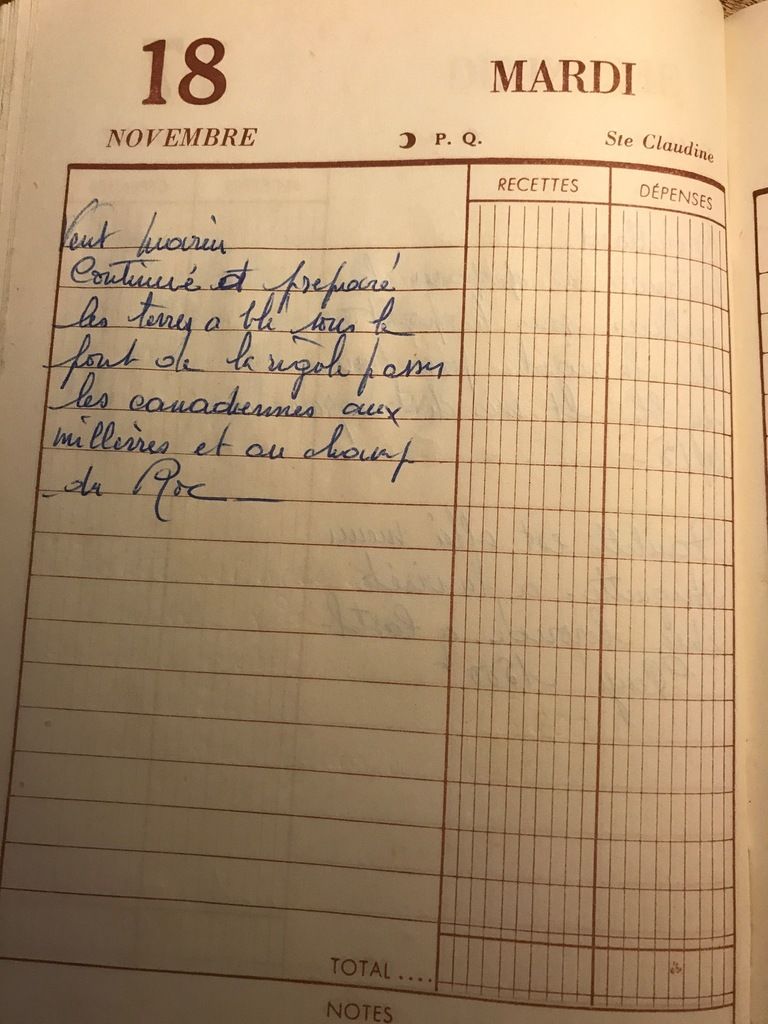 18 MARDI
NOVEMBRE P. Q. Ste Claudine
RECETTES DÉPENSES
Vent marin
Continué et preparé
les terres a blé sous le
pont de la rigole passer
les canadiennes aux
millières et au champ
du Roc
TOTAL ....
NOTES